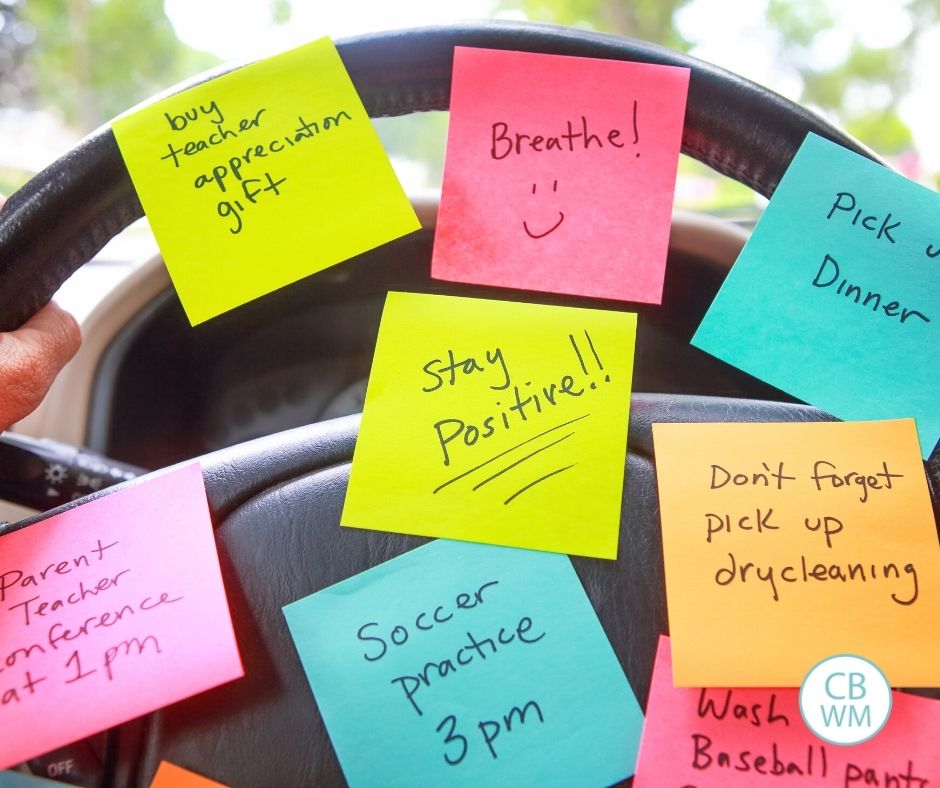 buy
teacher
appreciation
gift
Breathe!
Pick
Dinner
Stay
Positive!!
Don't forget
pick up
drycleaning
Parent
Teacher
onference
at 1pm
Soccer
practice
3pm
Wash
Baseball pants
CB
WM
OFF